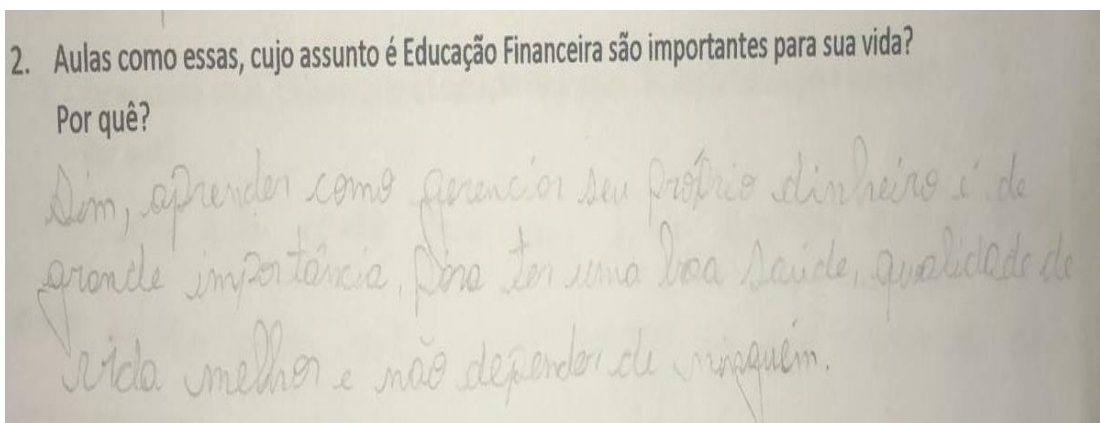 2. Aulas como essas, cujo assunto é Educação Financeira são importantes para sua vida?
Por quê?
Sim, aprender como gerenciar seu próprio dinheiro é de
grande importância, para ter uma boa saúde, qualidade de
vida melhor e não depender de ninguém.